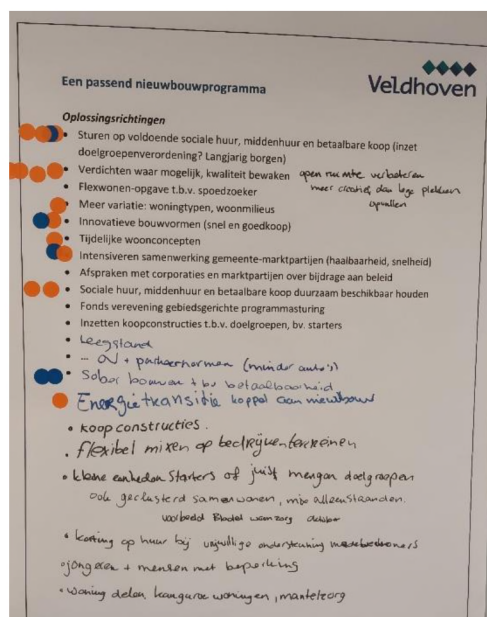 Veldhoven
Een passend nieuwbouwprogramma
Oplossingsrichtingen
• Sturen op voldoende sociale huur, middenhuur en betaalbare koop (inzet
doelgroepenverordening? Langjarig borgen)
• Verdichten waar mogelijk, kwaliteit bewaken open ruimte verbeteren
meer creatief dan lege plekken
opvullen
• Flexwonen-opgave t.b.v. spoedzoeker
• Meer variatie: woningtypen, woonmilieus
• Innovatieve bouwvormen (snel en goedkoop)
• Tijdelijke woonconcepten
• Intensiveren samenwerking gemeente-marktpartijen (haalbaarheid, snelheid)
• Afspraken met corporaties en marktpartijen over bijdrage aan beleid
• Sociale huur, middenhuur en betaalbare koop duurzaam beschikbaar houden
• Fonds verevening gebiedsgerichte programmasturing
• Inzetten koopconstructies t.b.v. doelgroepen, bv. starters
• Leegstand
• ... OV + parkeernormen (minder auto's)
• Sober bouwen t bv betaalbaarheid
Energietransitie koppel aan nieuwbouw
• koop constructies.
• flexibel mixen op bedrijventerreinen
• kleine eenheden starters of juist mengen doelgroepen
ook geclusterd samenwonen, mix alleenstaanden.
voorbeeld Bladel woonzorg
• korting op huur bij vrijwillige ondersteuning medebewoners
• jongeren + mensen met beperking
• woning delen, kangaroe woningen, mantelzorg